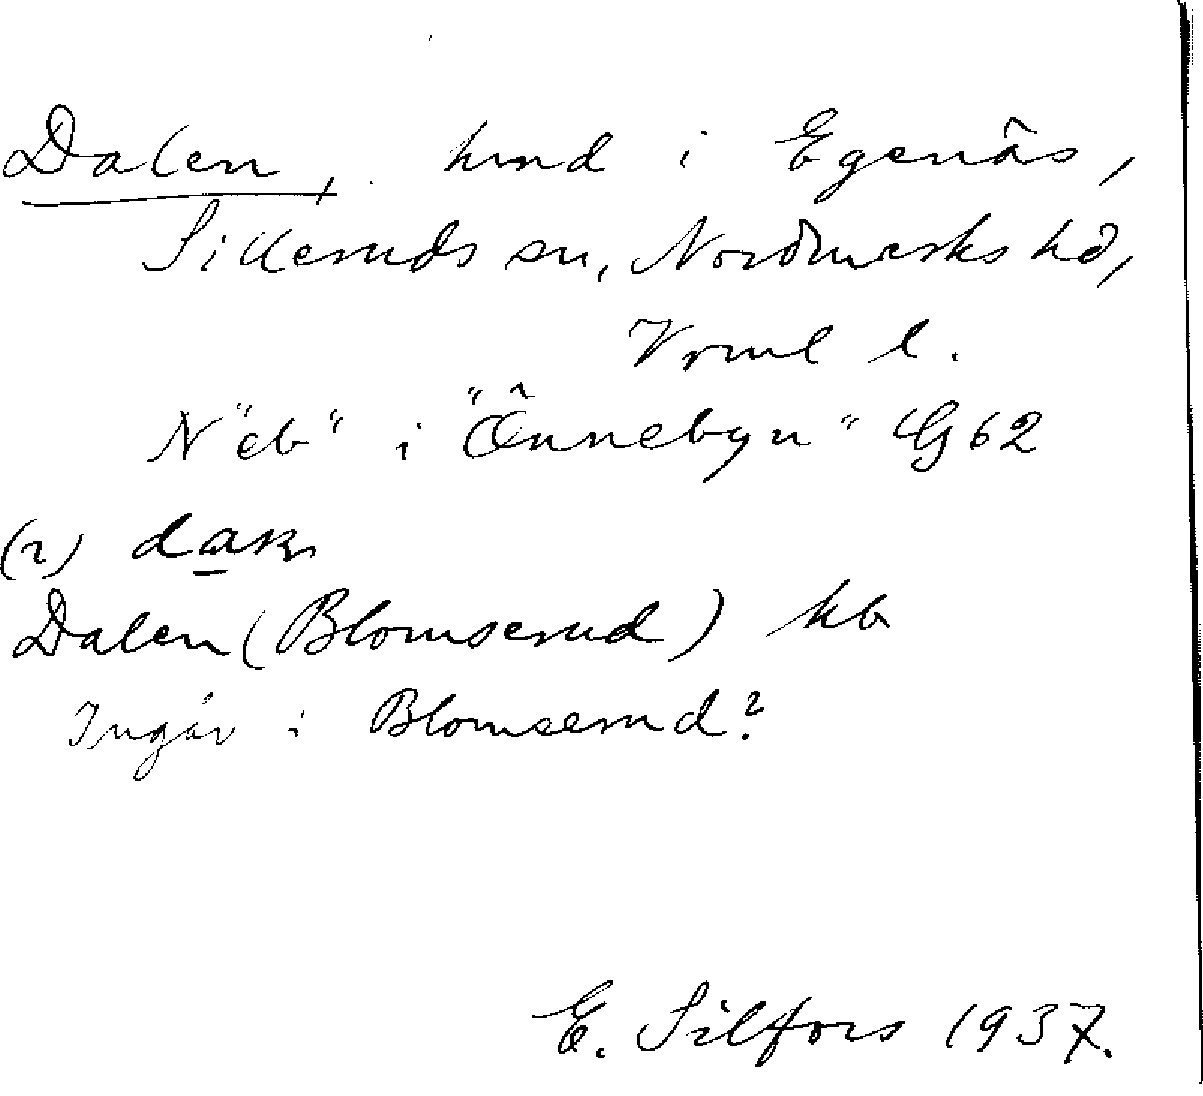 Dalen, hmd i Egenäs,
Silleruds sn, Nordmarks hd,
Vrml l.
N "eb" i "Önnebyn" G62
(2) daṉ
Dalen (Blomserud) kb
Ingår i Blomserud?
E. Silfors 1937.